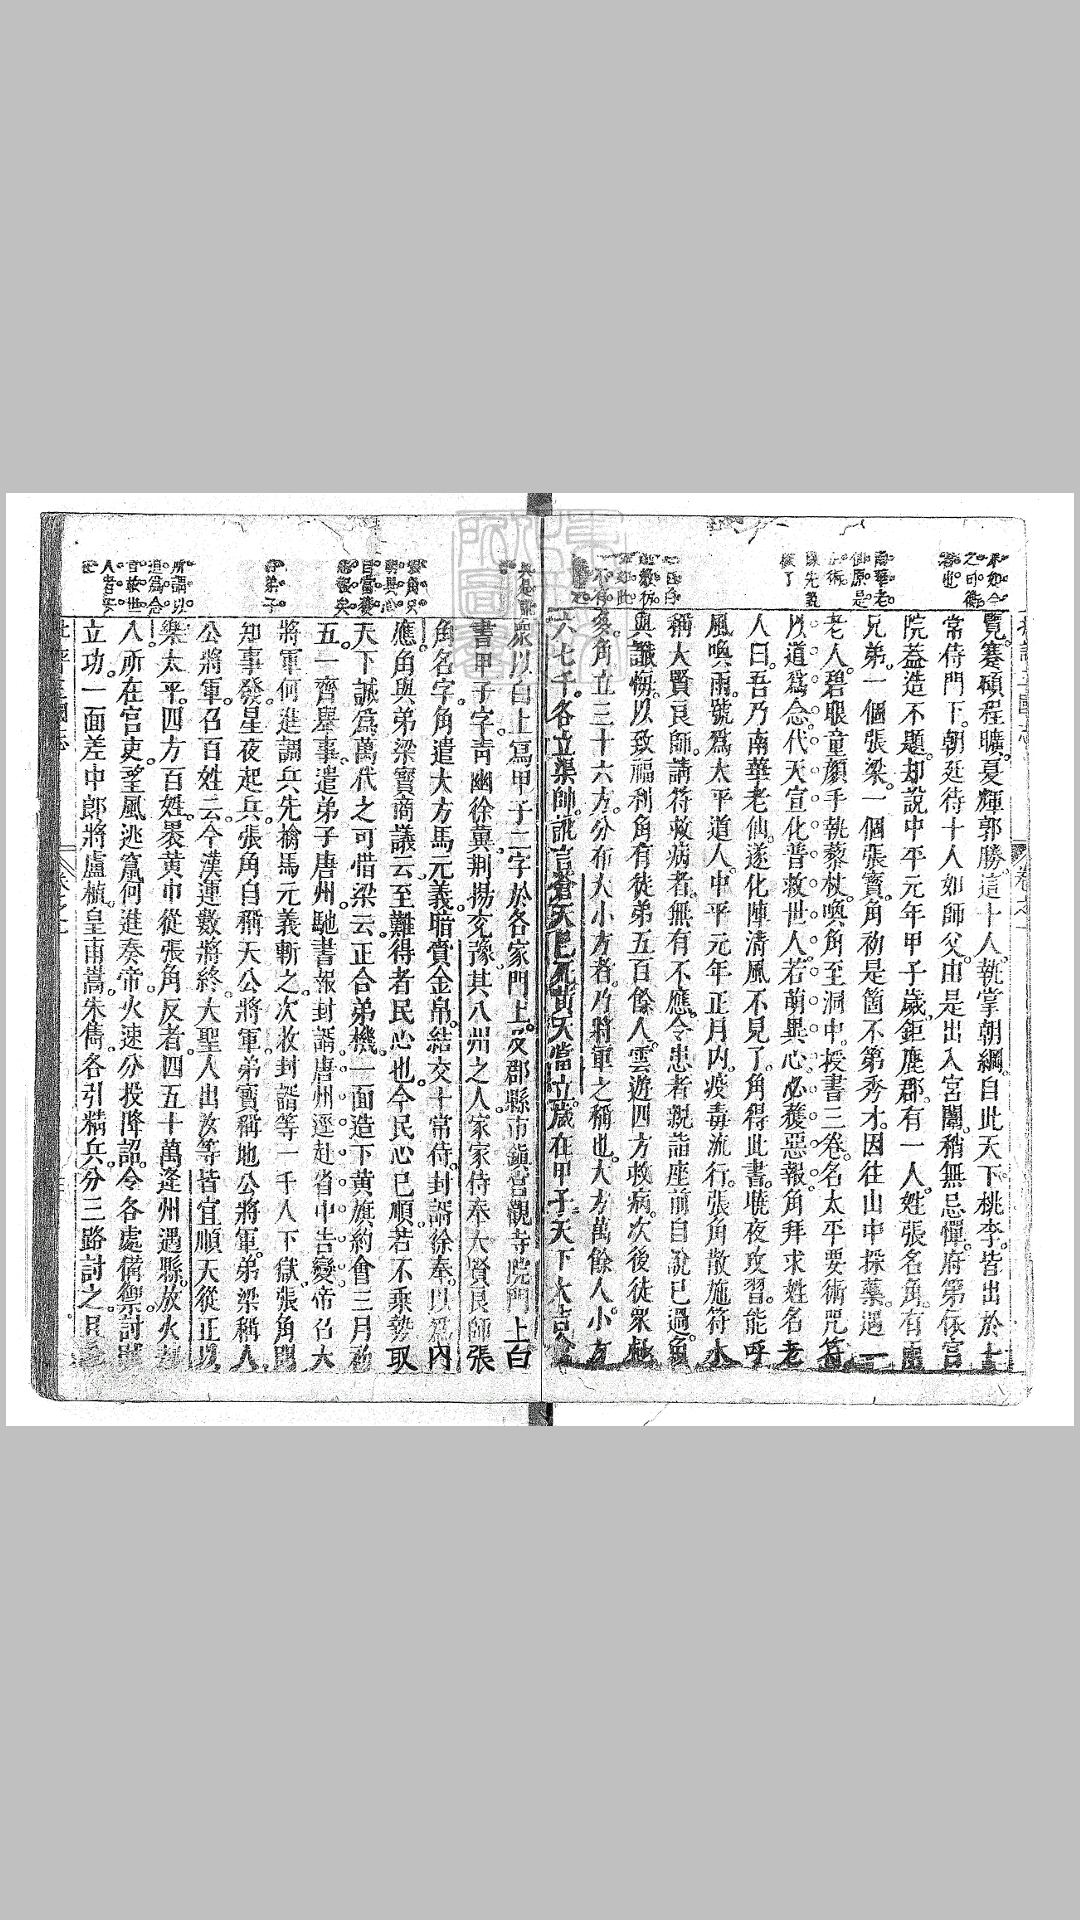 覽。蹇碩。程曠。夏輝。郭勝。這十人。執掌朝綱。自此天下桃李。皆出於十
常侍門下。朝廷待十人如師父。由是出入宮闈。稍無忌憚。府第依宮
院蓋造不題。却說中平元年甲子歲。鉅鹿郡有一人。姓張名角。有兩
兄弟。一個張梁。一個張寶。角初是箇不第秀才。因往山中採藥。遇一
老人。碧眼童顏。手執藜杖。喚角至洞中。授書三卷。名太平要術咒符
以道爲念。代天宣化。普救世人。若萌異心。必獲惡報。角拜求姓名。老
人曰。吾乃南華老仙。遂化陣清風不見了。角得此書。曉夜攻習。能呼
風喚雨。號爲太平道人。中平元年正月內。疫毒流行。張角散施符水
稱大賢良師。請符救病者。無有不應。令患者親詣座前。自說已過。角
與讖悔。以致福利。角有徒弟五百餘人。雲遊四方救病。次後徒眾極
多。角立三十六方。分布大小方者。乃將軍之稱也。大方萬餘人。小方
六七千。各立渠帥。訛言蒼天已死。黃天當立。歲在甲子。天下大吉。令
眾以白土寫甲子二字於各家門上。及郡縣市鎮宮觀寺院門上。白
書甲子字。青幽徐冀荆揚兗豫。其八州之人。家家侍奉大賢良師張
角名字。角遣大方馬元義。暗賫金帛。結交十常侍。封諝徐奉。以爲內
應。角與弟梁寶商議云。至難得者民心也。今民心已順。若不乘勢取
天下。誠爲萬代之可惜。梁云。正合弟機。一面造下黃旗。約會三月初
五。一齊舉事。遣弟子唐州。馳書報封諝。唐州逕赴省中告變。帝召大
將軍何進調兵。先擒馬元義斬之。次收封諝等一千人下獄。張角聞
知事發。星夜起兵。張角自稱天公將軍。弟寶稱地公將軍。弟梁稱人
公將軍。召百姓云。今漢運數將終。大聖人出。汝等皆宜順天從正。以
樂太平。四方百姓。裹黃巾從張角反者。四五十萬。逢州遇縣。放火刼
人。所在官吏。望風逃竄。何進奏帝。火速分投降詔。令各處備禦討賊
立功。一面差中郎將盧植。皇甫嵩。朱雋。各引精兵。分三路討之。且